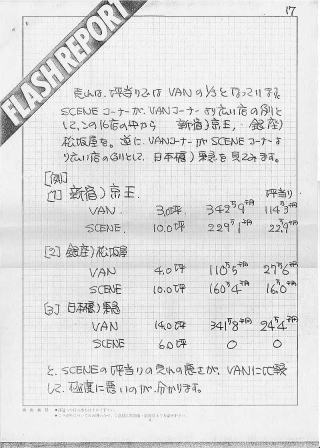 17
FLASH REPORT
売上は、坪当りではVANの1/3となっています。
SCENEコーナーが、VANコーナーより広い店の例と
して、この16店の中から 新宿)京王, 銀座)
松坂屋を。逆に、VANコーナーがSCENEコーナーよ
り広い店の例として、日本橋)東急を見てみます。
[例]
[1] 新宿)京王. 坪当り
VAN 3.0坪 342万9千円 114万3千円
SCENE 10.0坪 229万1千円 22.9万
[2] 銀座)松坂屋
VAN 4.0坪 110万5千円 27万6千円
SCENE 10.0坪 160万4千円 16.0万
[3] 日本橋)東急
VAN 14.0坪 341万8千円 24万4千円
SCENE 6.0坪 0 0
と、SCENEの坪当りの売れの悪さが、VANに比較
して、極度に悪いのが、分かります。